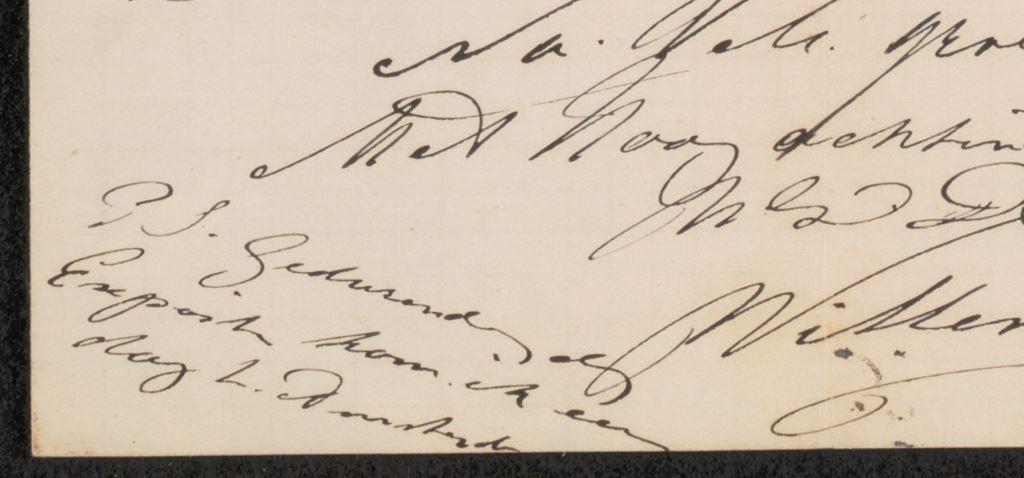 Na. Vele. gro
Met Hoog achtin
M G D
Willem
P S. Gedurende de
Expositie kom ik een
dag t. Amsterd